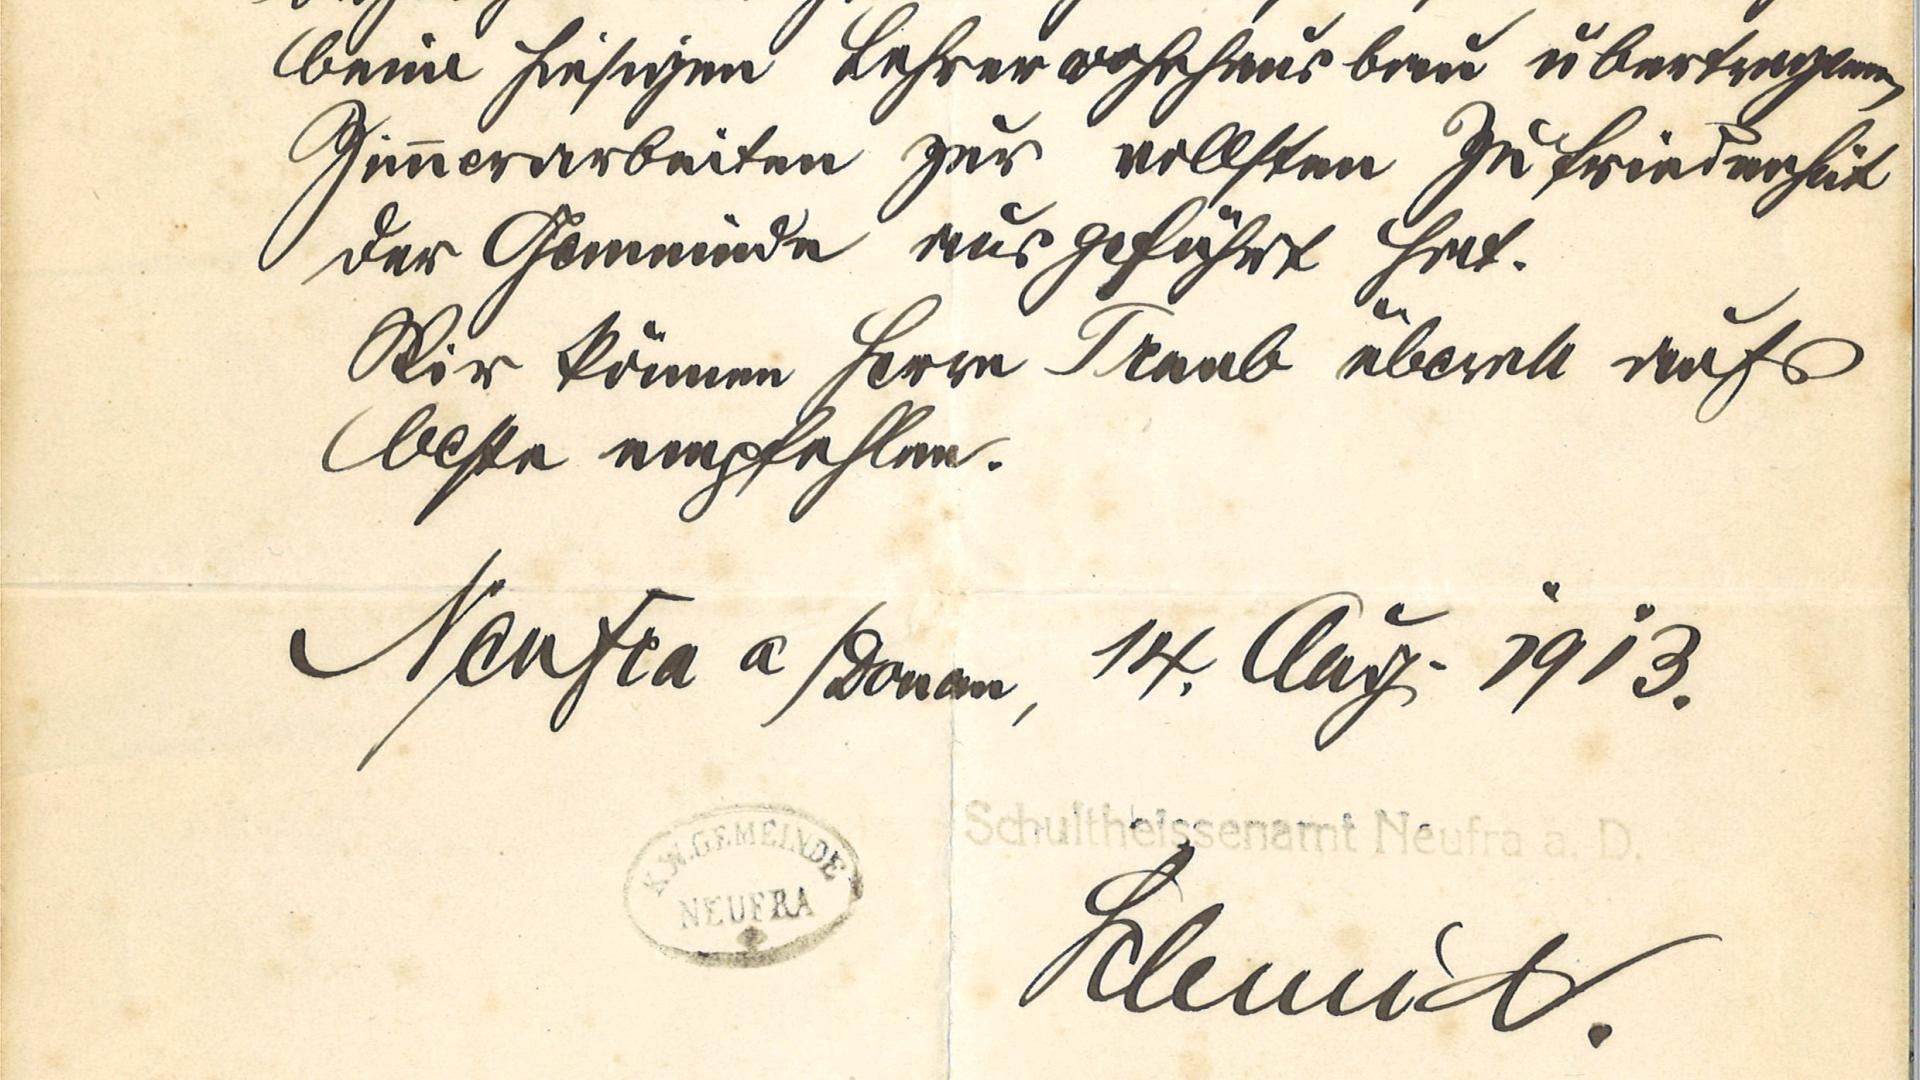 beim hiesigen Lehrerwohnhausbau übertragenen
Zimerarbeiten zur vollsten Zufriedenheit
der Gemeinde ausgeführt hat.
Wir können Herrn Traub überall aufs
beste empfehlen.
Neufra a/Donau, 14. Aug. 1913.
K.W.GEMEINDE
NEUFRA
Schultheissenamt Neufra a. D.
Schmid.